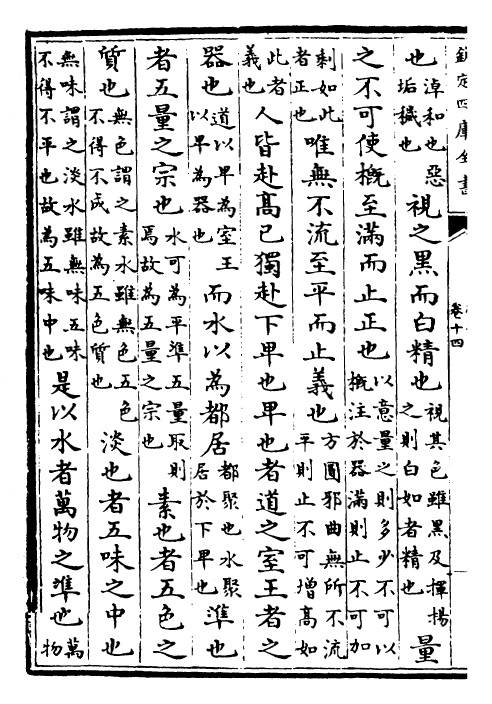 欽定四庫全書
卷十四
也淖和也惡垢穢也視之黑而白精也視其色雖黑及揮揚之則白如者精也量
之不可使概至滿而止正也以意量之則多少不可以概注於器滿則止不可加
剩如此者正也唯無不流至平而止義也方圓邪曲無所不流平則止不可增高如
此者義也人皆赴髙己獨赴下卑也卑也者道之室王者之
器也道以卑為室王以卑為器也而水以為都居都聚也水聚居於下卑也準也
者五量之宗也水可為平準五量取則焉故為五量之宗也素也者五色之
質也無色謂之素水雖無色五色不得不成故為五色質也淡也者五味之中也
無味謂之淡水雖無味五味不得不平也故為五味中也是以水者萬物之準也萬物